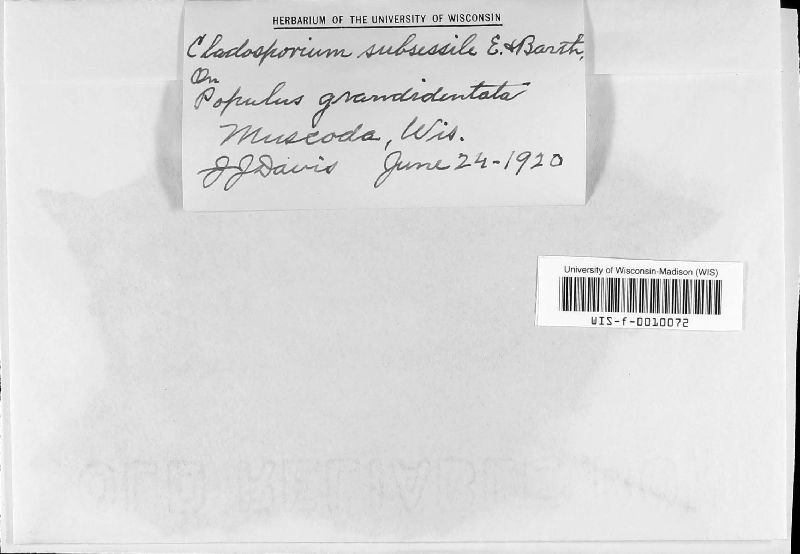 HERBARIUM OF THE UNIVERSITY OF WISCONSIN
Cladosporium subsessile E. & Barth.
On
Populus grandidentata
Muscoda, Wis.
J J Davis June 24-1920
University of Wisconsin-Madison (WIS)
WIS-f-0010072
OLD RELIABLE